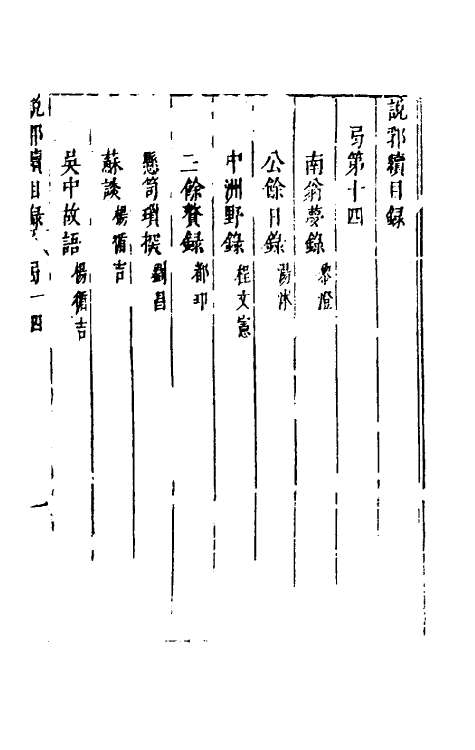 說郛續目錄
弓第十四
南翁夢錄 黎澄
公餘日錄 湯沐
中洲野錄 程文憲
三餘贅錄 都卭
懸笥瑣探 劉昌
蘇談 楊循吉
吳中故語 楊循吉
說郛續目錄 弓一四 一